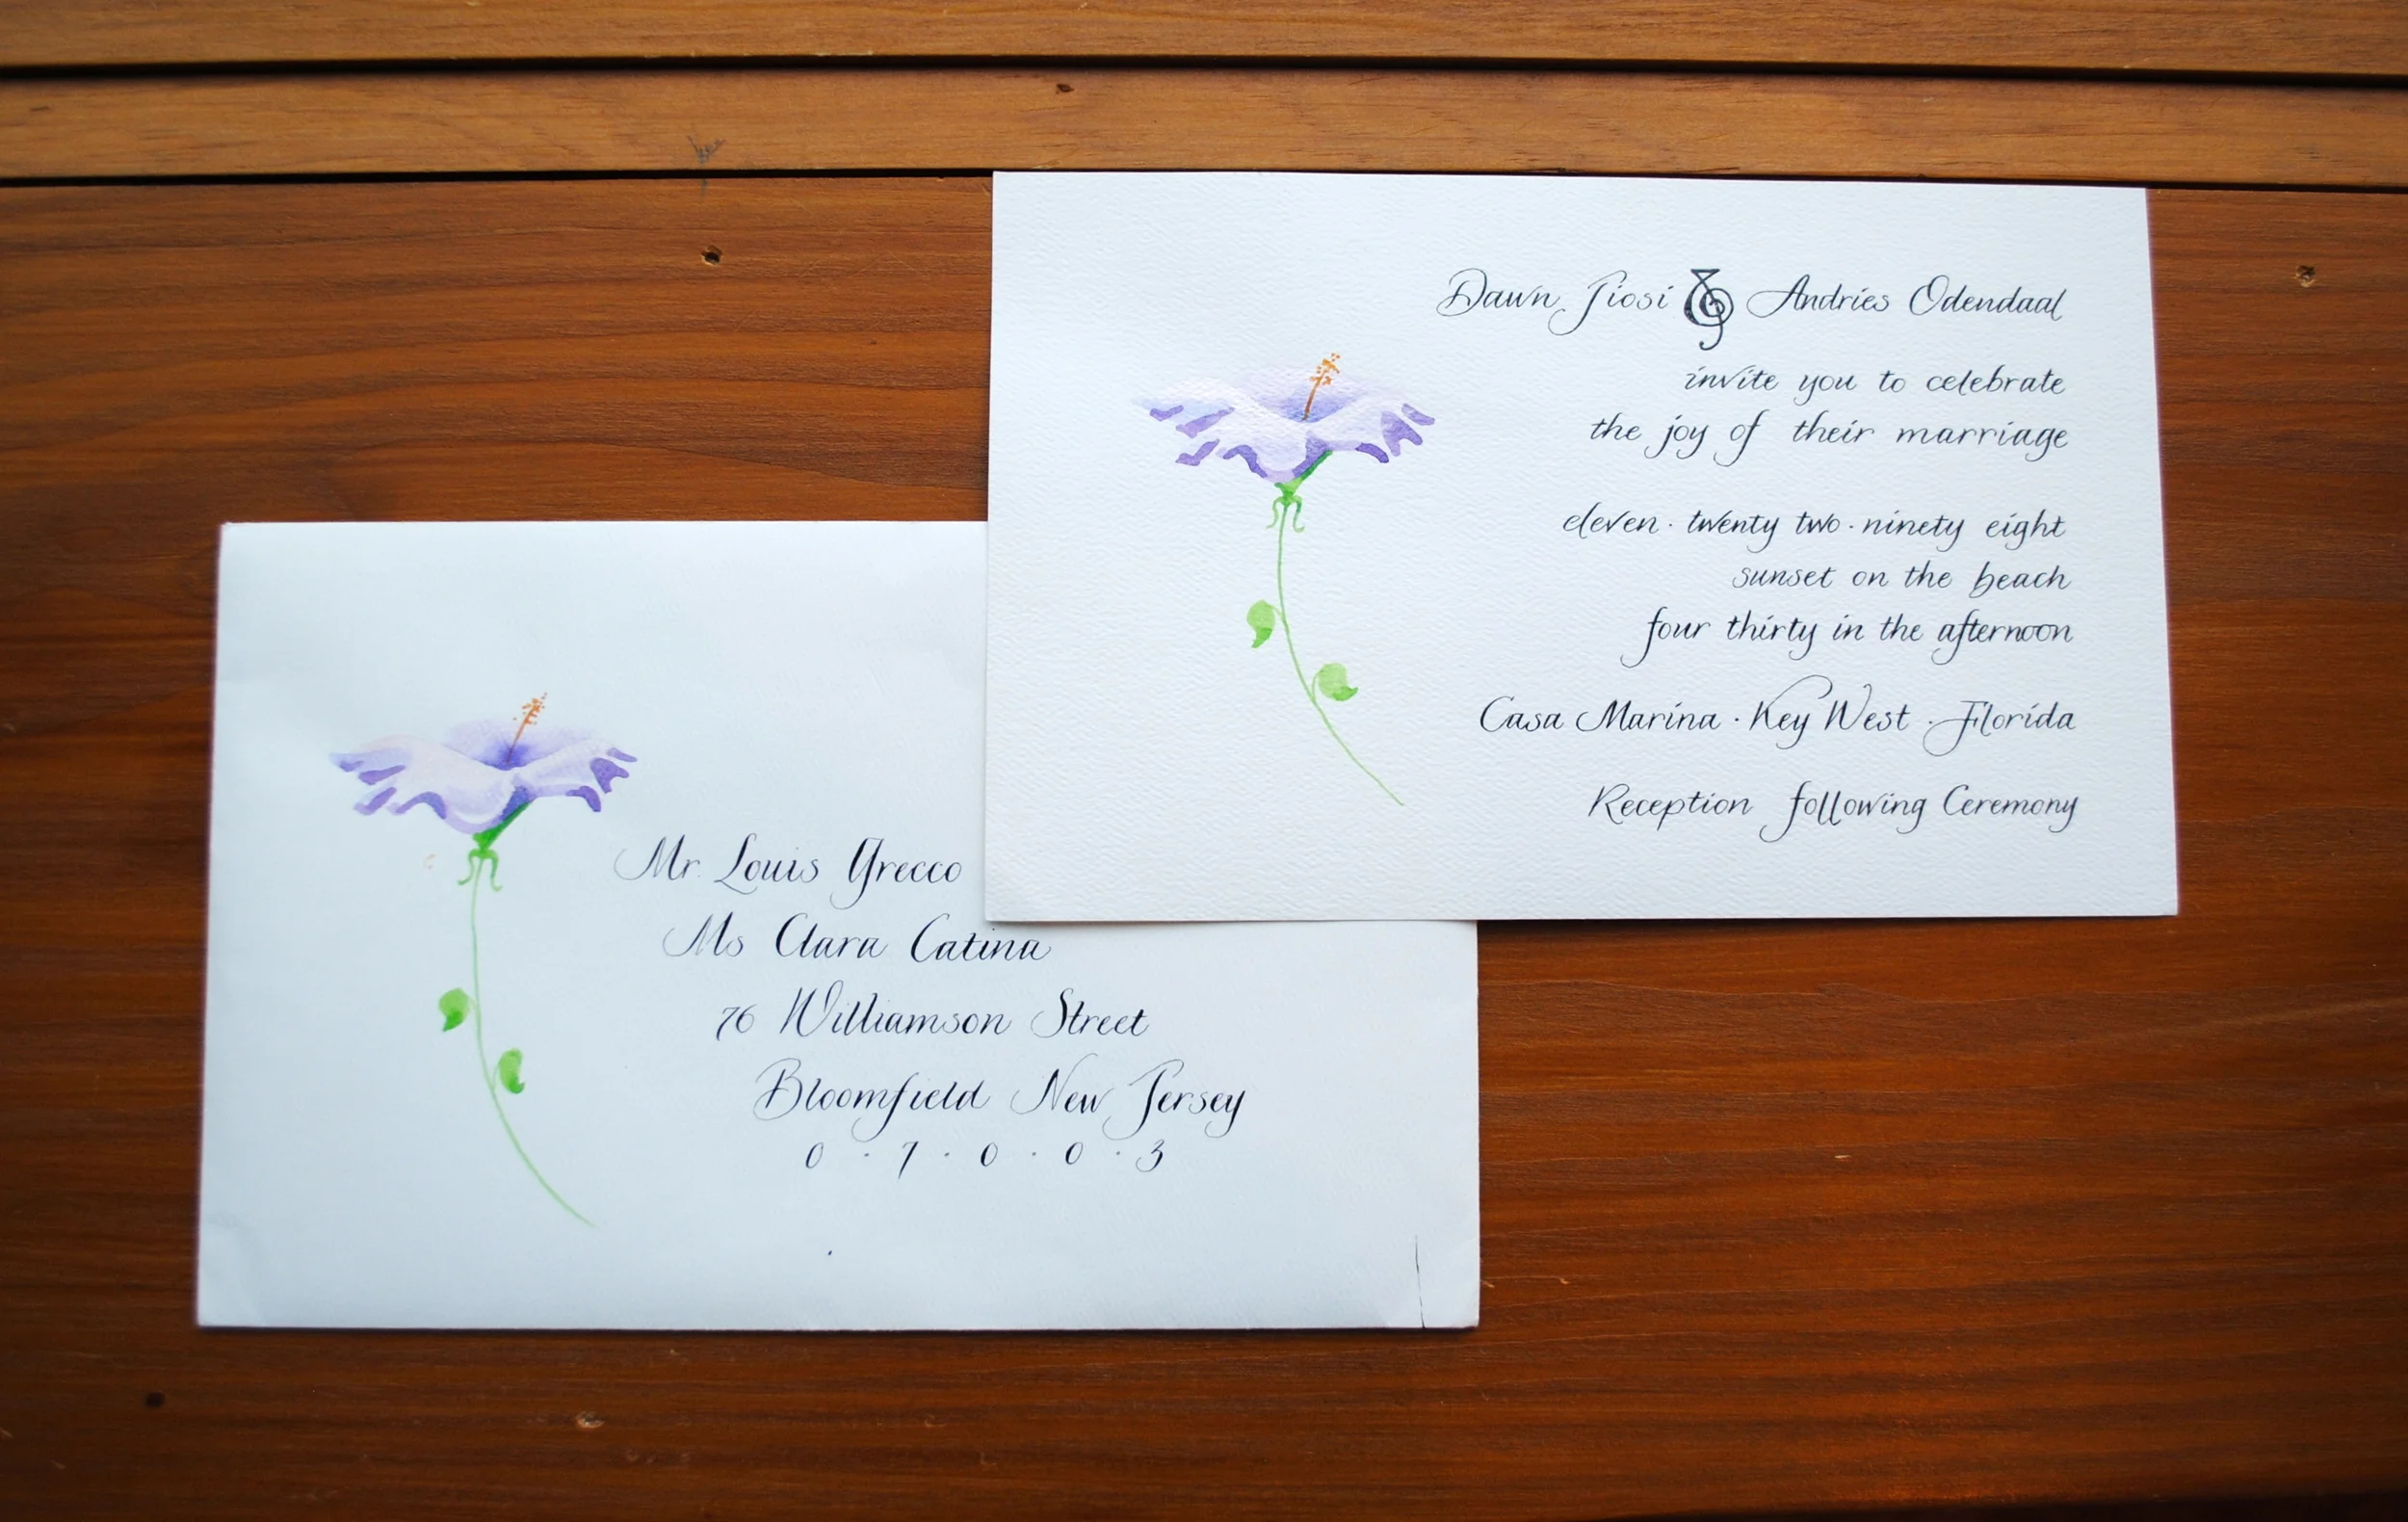 Dawn Fiosi & Andries Odendaal
invite you to celebrate
the joy of their marriage
eleven · twenty two · ninety eight
sunset on the beach
four thirty in the afternoon
Casa Marina · Key West · Florida
Reception following Ceremony
Mr. Louis Grecco
Ms Clara Catina
76 Williamson Street
Bloomfield New Jersey
0 · 7 · 0 · 0 · 3